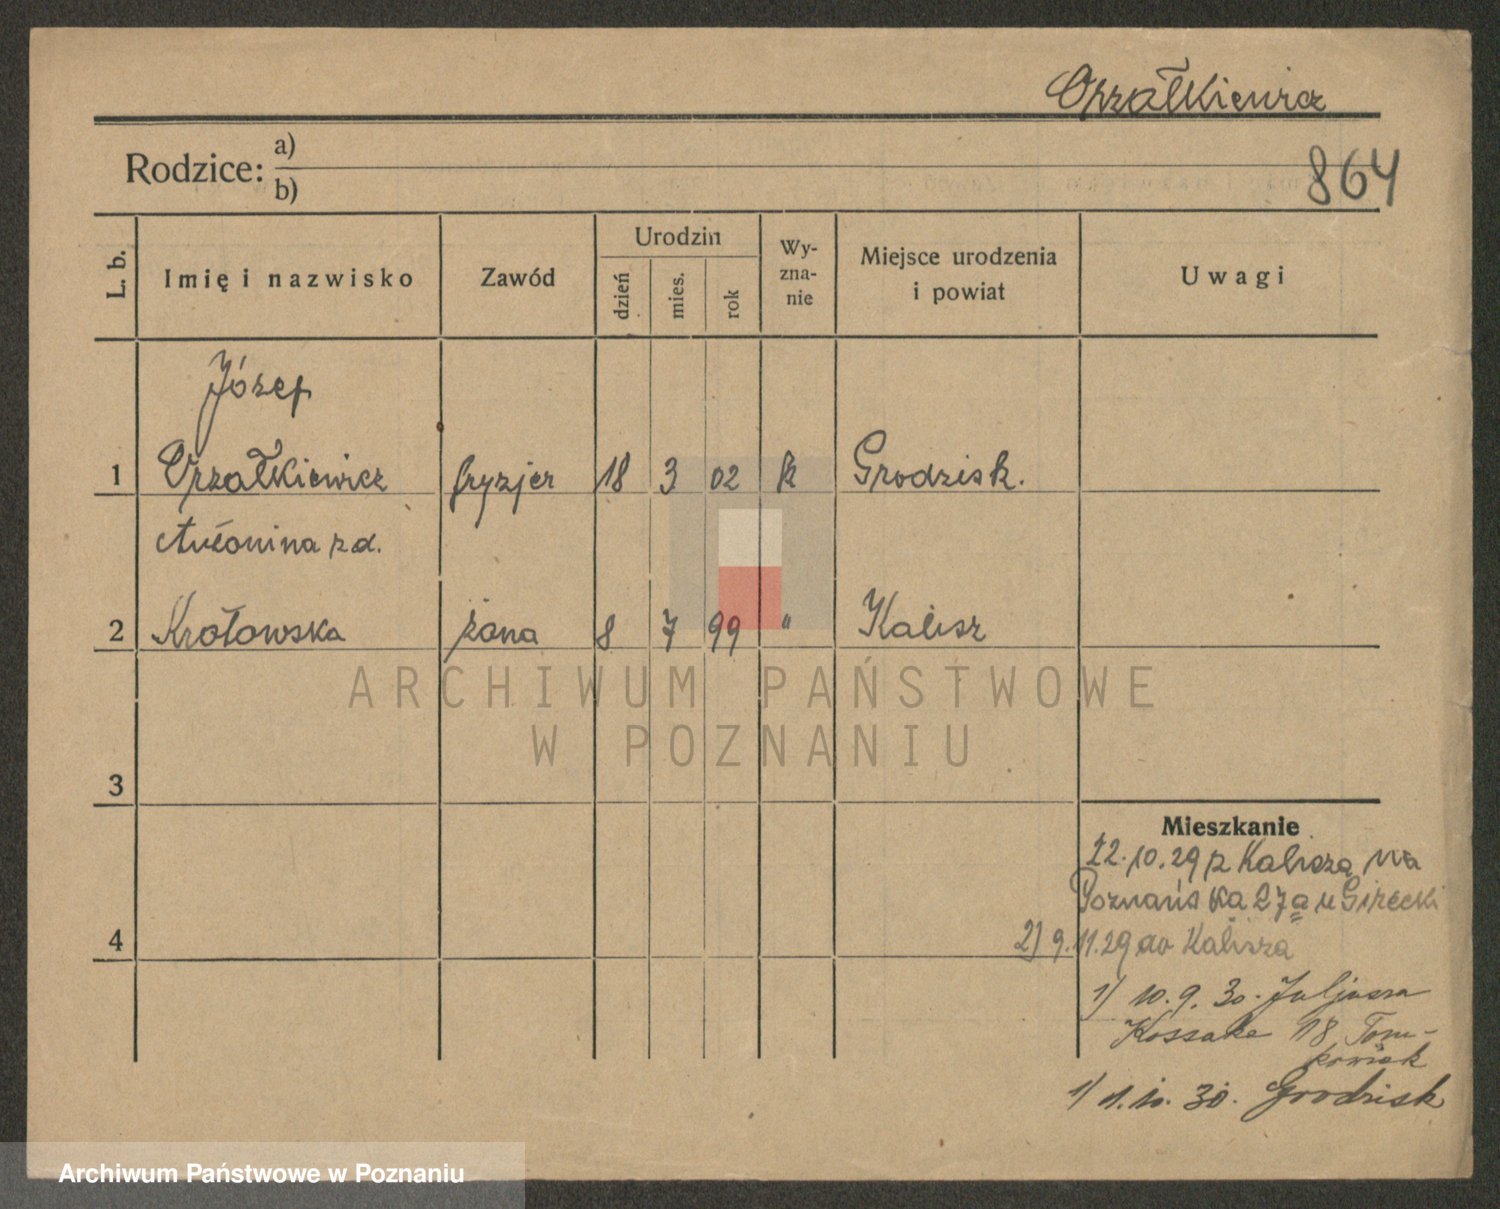 Orzałkiewicz
Rodzice: a)
b)
864
L. b.
Imię i nazwisko
Zawód
Urodzin
dzień
mies.
rok
Wy-
zna-
nie
Miejsce urodzenia
i powiat
Uwagi
Józef
1 Orzałkiewicz fryzjer 18 3 02 k Grodzisk.
Antonina z d.
2 Krołowska żona 8 7 99 " Kalisz
ARCHIWUM PAŃSTWOWE
W POZNANIU
3
Mieszkanie
22.10.29 z Kalisza na
Poznańska 27a u Girecki
4
2) 9.11.29 do Kalisza
1) 10.9.30. Juljusza
Kossaka 18 Tom-
kowiak
1) 1.10.30. Grodzisk
Archiwum Państwowe w Poznaniu